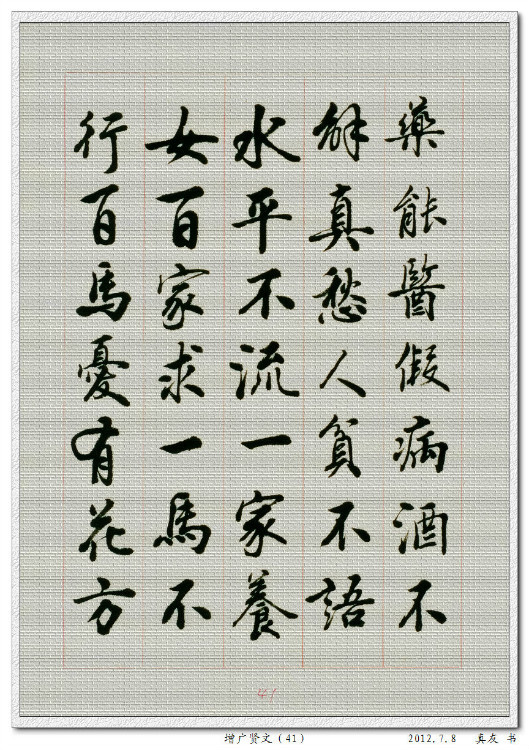 藥能醫假病酒不
解真愁人貧不語
水平不流一家養
女百家求一馬不
行百馬憂有花方
41
增广贤文（41） 2012.7.8 真友 书